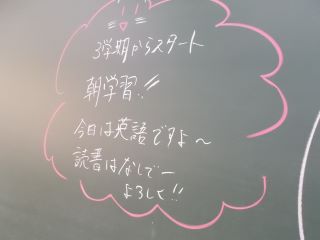 3学期からスタート
朝学習!!
今日は英語ですよ～
読書はなしでー
よろしく!!